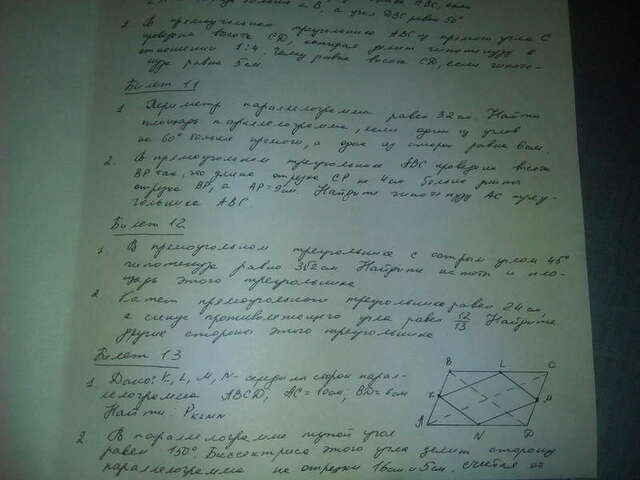 большего В, а угол DBC равен 50°
2 В прямоугольном треугольнике ABC из прямого угла С
проведена высота CD, которая делит гипотенузу в
отношении 1:4. Чему равна высота CD, если гипоте-
нуза равна 5см.
Билет 11
1. Периметр параллелограмма равен 32см. Найти
площадь параллелограмма, если один из углов
на 60° больше прямого, а одна из сторон равна 6см.
2. В прямоугольном треугольнике ABC проведена высота
BP так, что длина отрезка CP на 4см больше длины
отрезка BP, а AP=9см. Найдите гипотенузу AC треу-
гольника ABC
Билет 12
1. В прямоугольном треугольнике с острым углом 45°
гипотенуза равна 3√2см. Найдите катеты и пло-
щадь этого треугольника
2 Катет прямоугольного треугольника равен 24см,
а синус противолежащего угла равен 12/13 Найдите
другие стороны этого треугольника
Билет 13
1. Дано: K, L, M, N - середины сторон парал-
лелограмма ABCD, AC=10см, BD=6см
Найти: P KLMN
B L C
K M
A N D
2 В параллелограмме тупой угол
равен 150°. Биссектриса этого угла делит сторону
параллелограмма на отрезки 16см и 5см, считая от